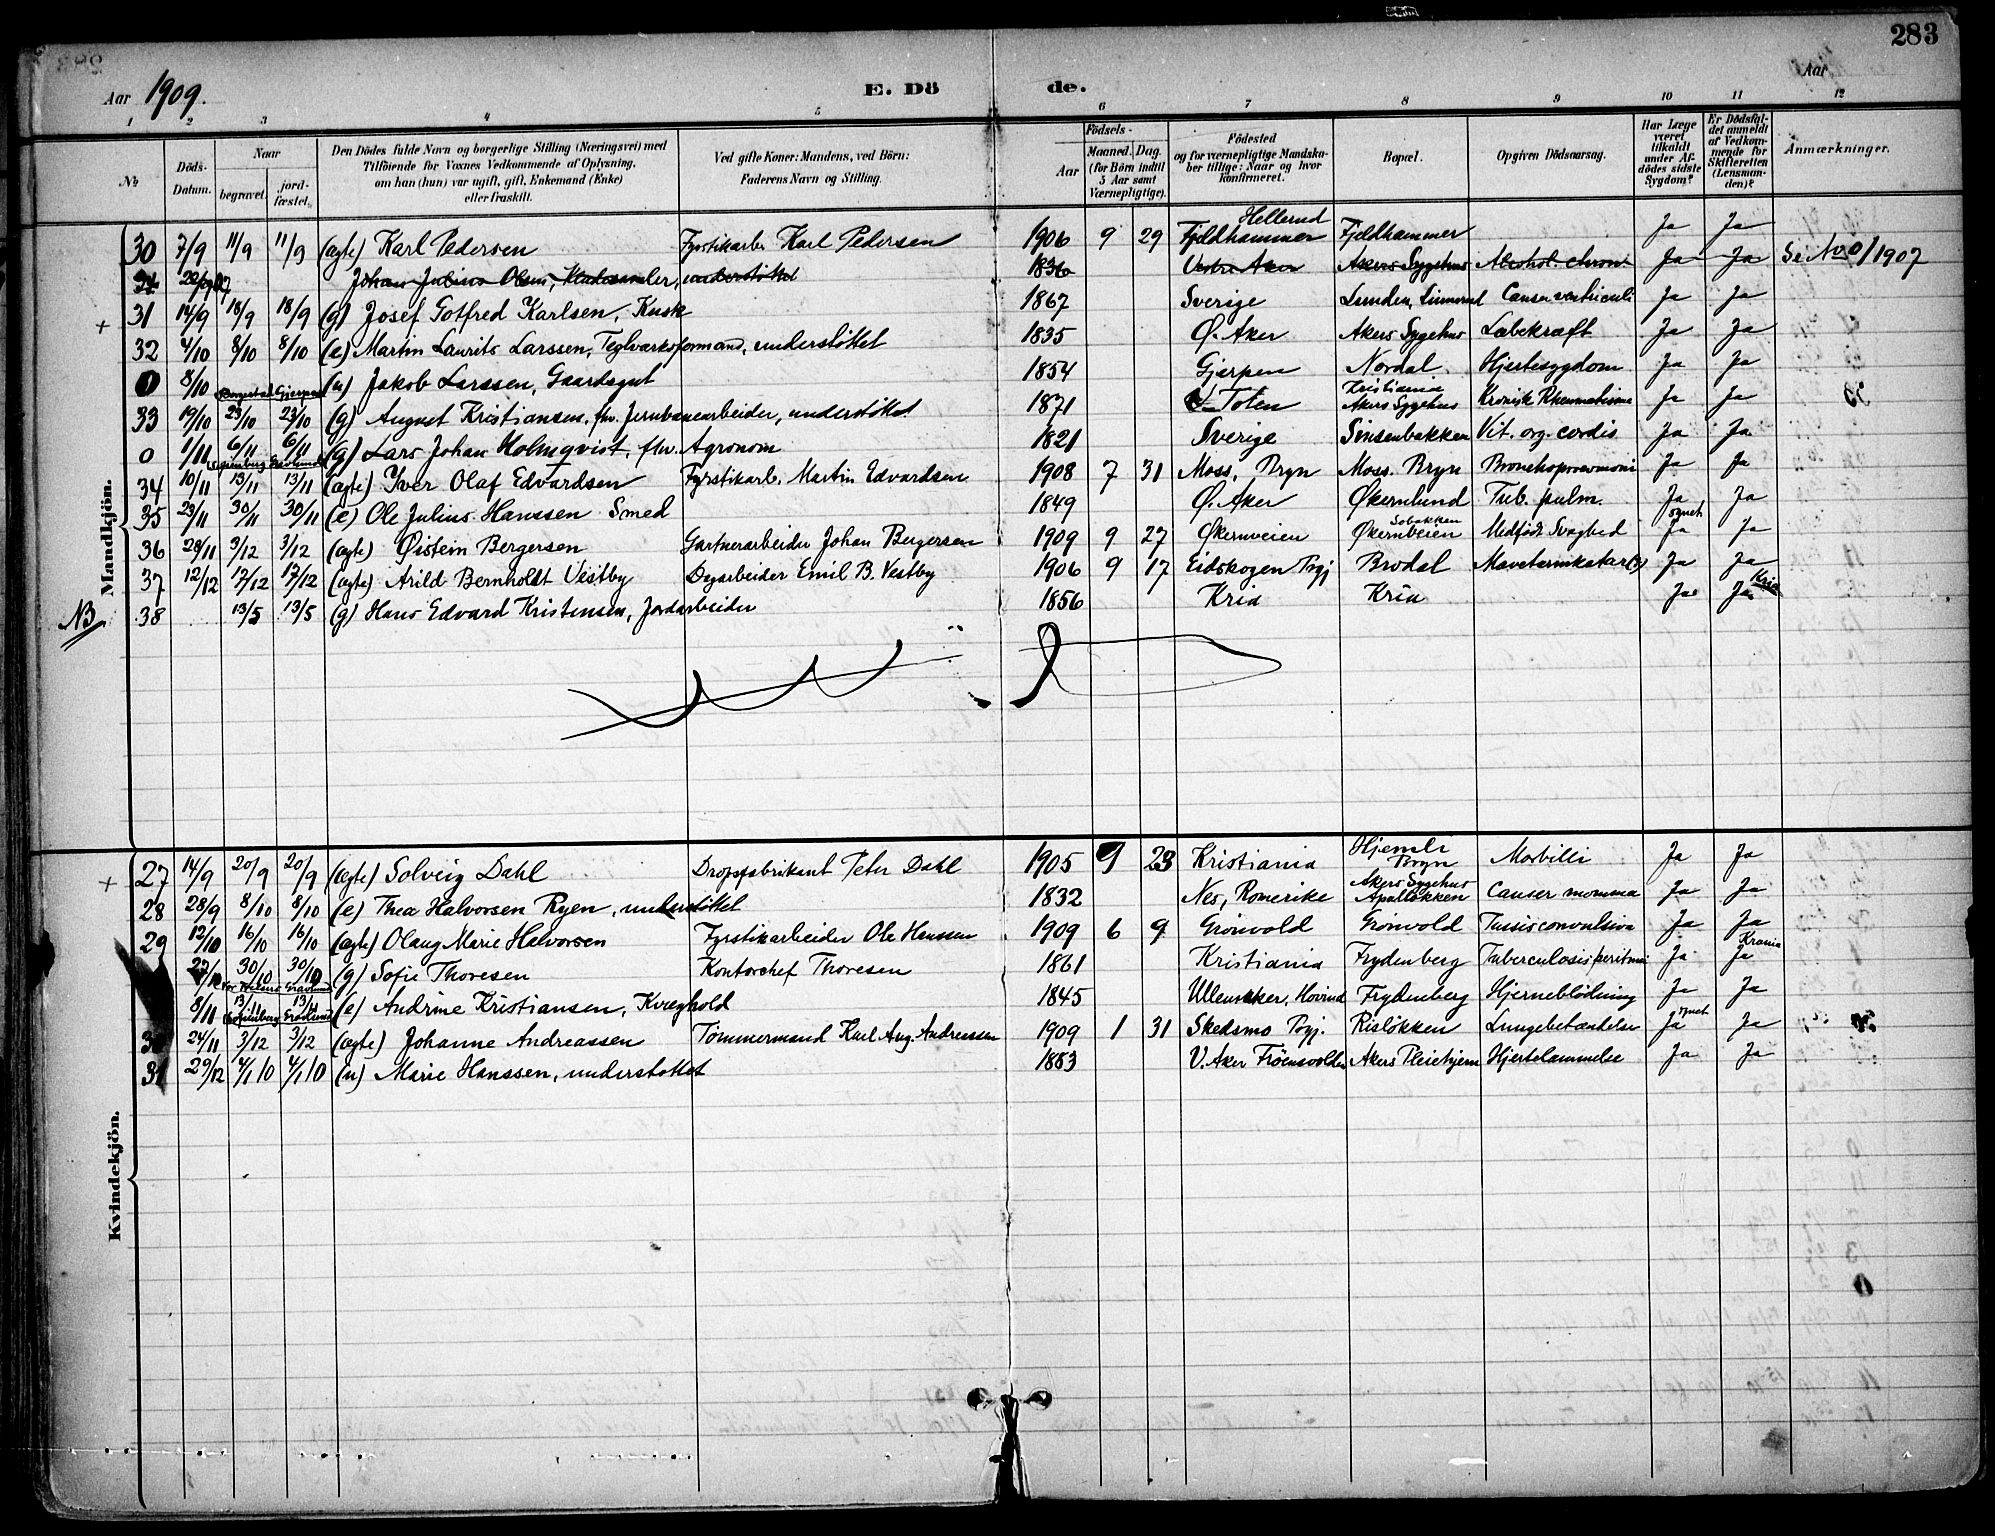 283
Aar 1909. E. Dö de. Aar
1 2 3 4 5 6 7 8 9 10 11 12
№ Döds-Datum. Naar begravet. jord-fæstet. Den Dödes fulde Navn og borgerlige Stilling (Næringsvei) med Tilföiende for Voxnes Vedkommende af Oplysning, om han (hun) var ugift, gift, Enkemand (Enke) eller fraskilt. Ved gifte Koner: Mandens, ved Börn: Faderens Navn og Stilling. Födsels- Aar Maaned. Dag. (for Börn indtil 5 Aar samt Værnepligtige). Födested og for værnepligtige Mandskaber tillige: Naar og hvor konfirmeret. Bopæl. Opgiven Dödsaarsag. Har Læge været tilkaldt under Afdödes sidste Sygdom? Er Dödsfaldet anmeldt af Vedkommende for Skifteretten (Lensmanden)? Anmærkninger.
Mandkjön.
30 7/9 11/9 11/9 (ægte) Karl Pedersen Fyrstikarb. Karl Pedersen 1906 9 29 Hellerud Fjeldhammer Fjeldhammer Ja Ja
Johan Julius Olsen, Kludesamler, understöttet 1836 Vestre Aker Akers Sygehus Alcohol. chron. Ja Ja Se No 0/1907
+ 31 14/9 18/9 18/9 (g) Josef Gotfred Karlsen, Kusk 1867 Sverige Lunden, Cancer ventriculi Ja Ja
32 4/10 8/10 8/10 (e) Martin Laurits Larssen, Teglverksformand, understöttet 1835 Ø. Aker Akers Sygehus Læbekræft Ja Ja
0 8/10 Gjerpen (u) Jakob Larssen, Gaardsgut 1854 Gjerpen Nordal Hjertesygdom Ja Ja
33 19/10 23/10 23/10 (g) August Kristiansen, fhv. Jernbanearbeider, understöttet 1871 V. Toten Kristiania Akers Sygehus Kronisk Rheumatisme Ja Ja
0 1/11 6/11 6/11 (g) Lars Johan Holmqvist, fhv. Agronom 1821 Sverige Sinsenbakken Vit. org. cordis Ja Ja
34 10/11 13/11 13/11 (ægte) Iver Olaf Edvardsen Fyrstikarb. Martin Edvardsen 1908 7 31 Moss, Bryn Moss. Bryn Bronchopneumoni Ja Ja
35 23/11 30/11 30/11 (e) Ole Julius Hanssen Smed 1849 Ø. Aker Økernlund Tub. pulm. Ja Ja
36 28/11 3/12 3/12 (ægte) Øistein Bergersen Gartnerarbeider Johan Bergersen 1909 9 27 Økernveien Solbakken Økernveien Medfödt Svaghed Ja Ja
37 12/12 17/12 17/12 (ægte) Arild Bernholdt Vestby Dagarbeider Emil B. Vestby 1906 9 17 Eidskogen Pgj Brodal Mavetarmkatar(?) Ja Ja
NB 38 13/5 13/5 (g) Hans Edvard Kristensen, Jordarbeider 1856 Kria Kria Ja Ja Kria
Kvindekjön.
+ 27 14/9 20/9 20/9 (ægte) Solveig Dahl Dropsfabrikant Peter Dahl 1905 9 23 Kristiania Hjemli Bryn Morbilli Ja Ja
28 28/9 8/10 8/10 (e) Thea Halvorsen Ryen, understöttet 1832 Nes, Romerike Akers Sygehus Apalløkken Cancer mamma Ja Ja
29 12/10 16/10 16/10 (ægte) Olaug Marie Halvorsen Fyrstikarbeider Ole Hanssen 1909 6 9 Grönvold Grönvold Tussis convulsiva Ja Ja
27/10 30/10 30/10 (g) Sofie Thoresen Kontorchef Thoresen 1861 Kristiania Frydenberg Tuberculosis peritonei Ja Krania Ja
8/11 13/11 13/11 (e) Andrine Kristiansen, Kvæghold 1845 Ullensaker, Hovind Frydenberg Hjerneblödning Ja Ja
30 24/11 3/12 3/12 (ægte) Johanne Andreassen Tömmermand Karl Aug. Andreassen 1909 1 31 Skedsmo Pgj. Risløkken Lungebetændelse Ja Ja
31 29/12 4/1 10 4/1 10 (u) Marie Hanssen, understöttet 1883 V. Aker Akers Pleiehjem Hjertelammelse Ja Ja